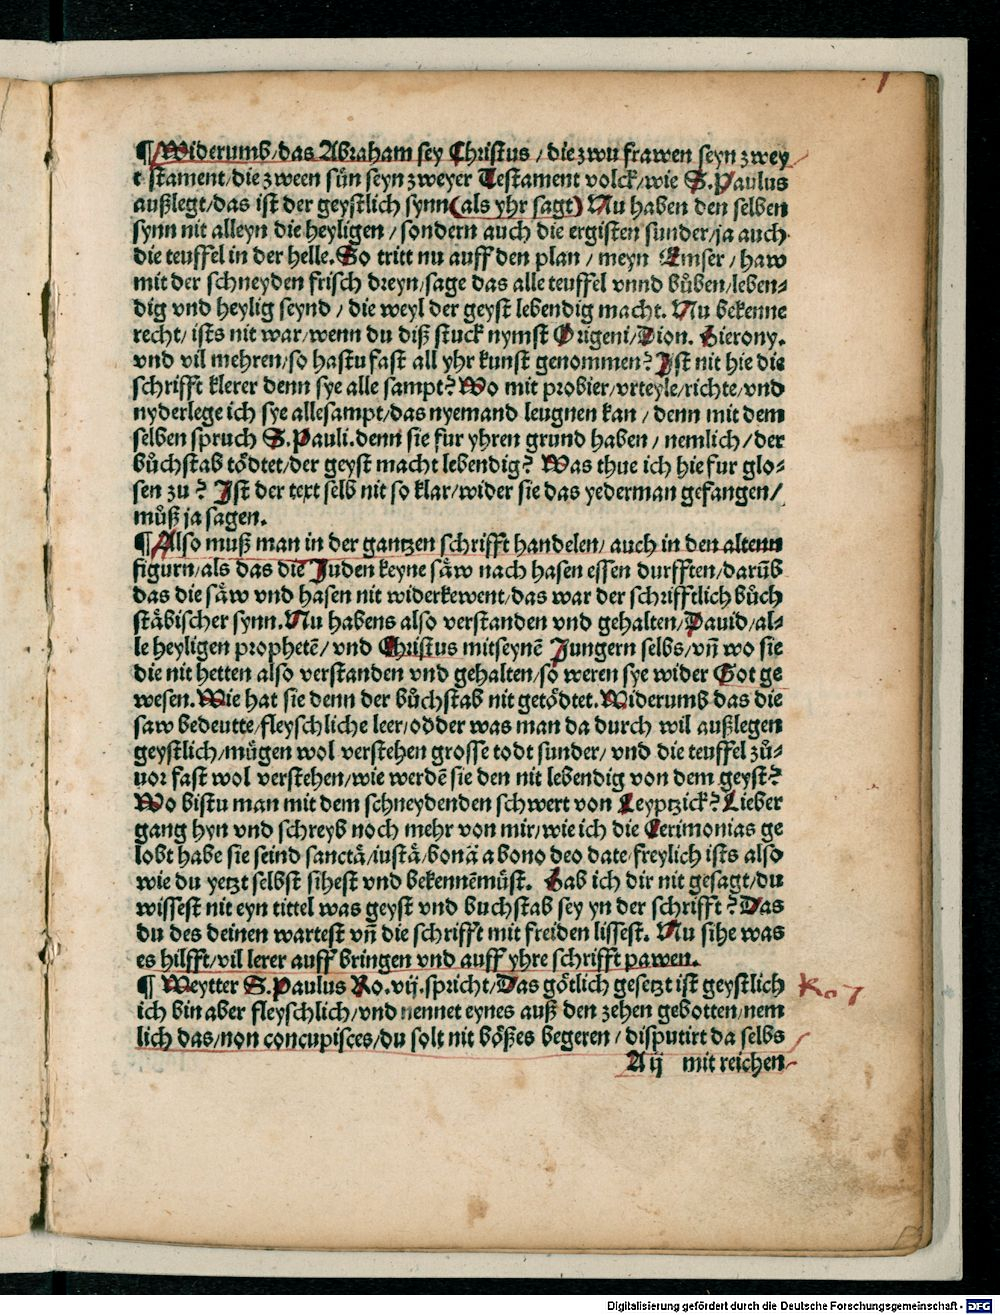 ¶ Widerumb/das Abraham sey Christus / die zwu frawen seyn zwey
t stament/die zween sün seyn zweyer Testament volck/wie S.Paulus
außlegt/das ist der geystlich synn(als yhr sagt) Nu haben den selben
synn nit alleyn die heyligen / sondern auch die ergisten sunder/ja auch
die teuffel in der helle. So tritt nu auff den plan / meyn Emser / haw
mit der schneyden frisch dreyn/sage das alle teuffel vnnd bůben/leben⸗
dig vnd heylig seynd / die weyl der geyst lebendig macht. Nu bekenne
recht/ ists nit war/wenn du diß stuck nymst Origeni/Dion. Hierony.
vnd vil mehren/so hastu fast all yhr kunst genommen? Ist nit hie die
schrifft klerer denn sye alle sampt? Wo mit probier/vrteyle/richte/vnd
nyderlege ich sye allesampt/das nyemand leugnen kan / denn mit dem
selben spruch S.Pauli.denn sie fur yhren grund haben / nemlich/der
bůchstab tödtet/der geyst macht lebendig? Was thue ich hie fur glo⸗
sen zu? Ist der text selb nit so klar/wider sie das yederman gefangen/
můß ja sagen.
¶ Also muß man in der gantzen schrifft handelen/ auch in den altenn
figurn/als das die Juden keyne säw nach hasen essen durfften/darūb
das die säw vnd hasen nit widerkewent/das war der schrifftlich bůch
stäbischer synn. Nu habens also verstanden vnd gehalten/Dauid/al⸗
le heyligen prophetē/ vnd Christus mitseynē Jungern selbs/vñ wo sie
die nit hetten also verstanden vnd gehalten/so weren sye wider Got ge
wesen. Wie hat sie denn der bůchstab nit getödtet. Widerumb das die
saw bedeutte/fleyschliche leer/odder was man da durch wil außlegen
geystlich/mügen wol verstehen grosse todt sunder/ vnd die teuffel zů⸗
uor fast wol verstehen/wie werdē sie den nit lebendig von dem geyst?
Wo bistu man mit dem schneydenden schwert von Leyptzick? Lieber
gang hyn vnd schreyb noch mehr von mir/wie ich die Cerimonias ge
lobt habe sie seind sanctä/iustä/bonä a bono deo date/freylich ists also
wie du yetzt selbst sihest vnd bekennēmüst. Hab ich dir nit gesagt/du
wissest nit eyn tittel was geyst vnd buchstab sey yn der schrifft? Das
du des deinen wartest vñ die schrifft mit freiden lissest. Nu sihe was
es hilfft/vil lerer auff bringen vnd auff yhre schrifft pawen.
¶ Weytter S.Paulus Ro.vij.spricht/Das götlich gesetzt ist geystlich
ich bin aber fleyschlich/vnd nennet eynes auß den zehen gebotten/nem
lich das/non concupisces/du solt nit bößes begeren / disputirt da selbs
A ij mit reichen
Ro 7
Digitalisierung gefördert durch die Deutsche Forschungsgemeinschaft - DFG